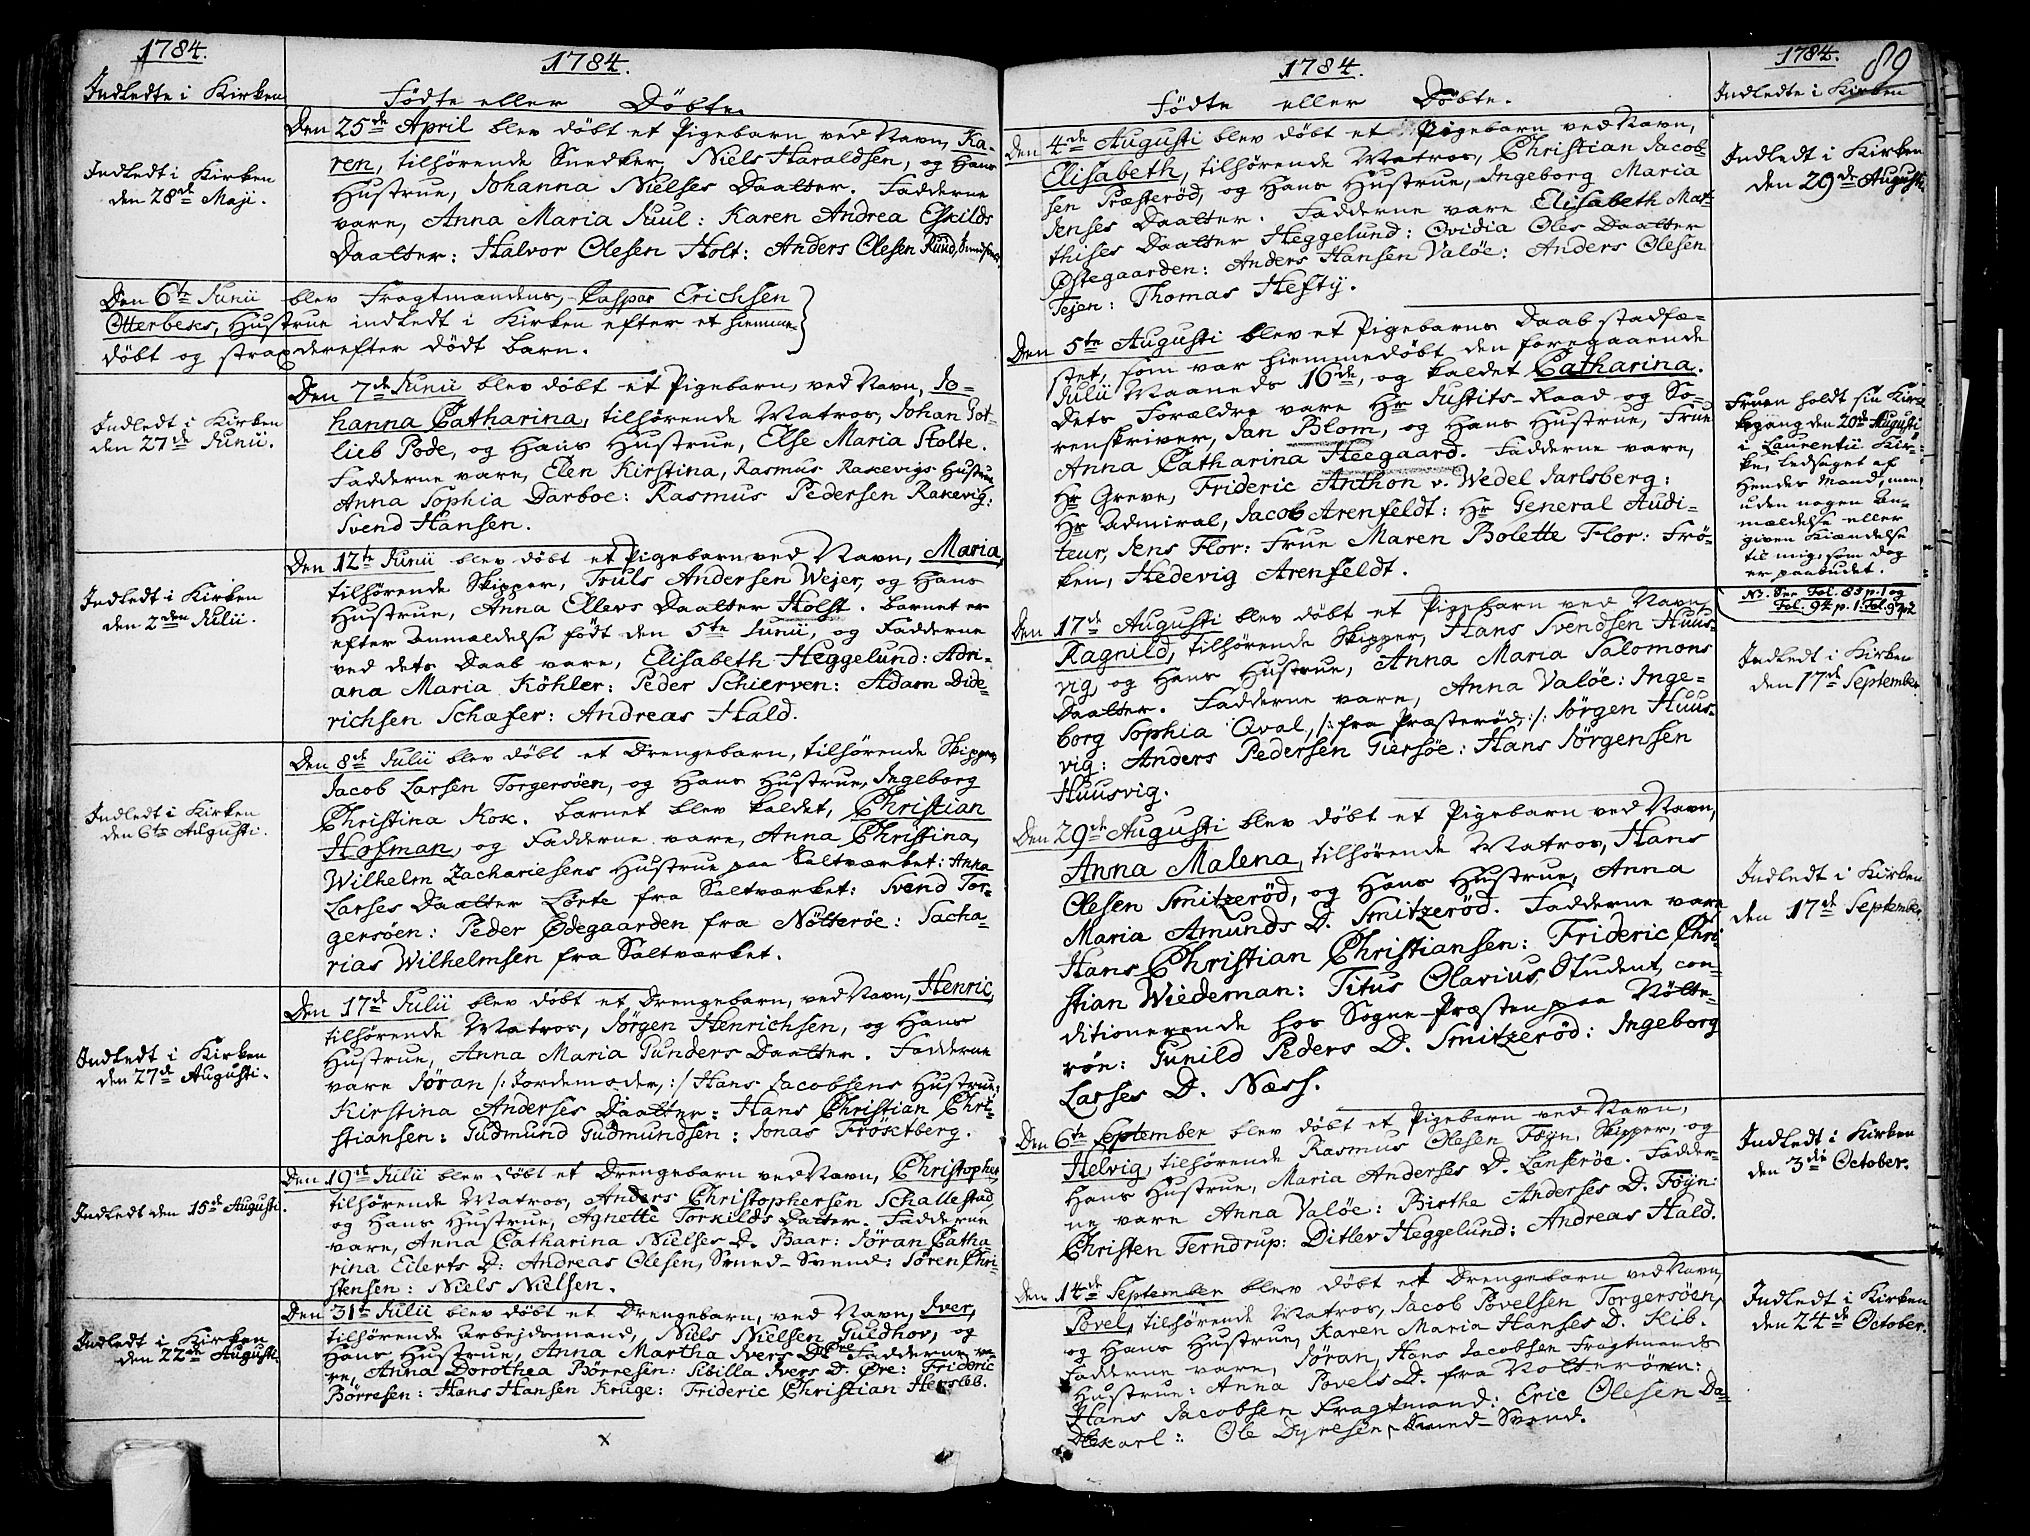 1784.
Indledte i Kirken
1784.
Fødte eller Døbte.
Den 25de April blev døbt et Pigebarn ved Navn, Ka-
ren, tilhørende Snedker, Niels Haraldsen, og Hans
Hustrue, Johanna Nielses Daatter. Fadderne
vare, Anna Maria Juul: Karen Andrea Eskilds
Daatter: Halvor Olesen Holt: Anders Olesen Ruud,
Indledt i Kirken
den 28de Maji.
Den 6te Junii blev Fragtmandens, Caspar Erichsen
Otterbecs, Hustrue indledt i Kirken efter et hiemme-
døbt og strax derefter dødt barn.
Den 7de Junii blev døbt et Pigebarn, ved Navn, Jo-
hanna Catharina, tilhørende Matros, Johan Got-
lieb Pode, og Hans Hustrue, Else Maria Stolte.
Fadderne vare, Elen Kirstina, Rasmus Rakevigs Hustrue
Anna Sophia Darboe: Rasmus Pedersen Rakevig:
Svend Hansen.
Indledt i Kirken
den 27de Junii.
Den 12te Junii blev døbt et Pigebarn ved Navn, Maria,
tilhørende Skipper, Truls Andersen Wejer, og Hans
Hustrue, Anna Ellevs Daatter Holst. Barnet er
efter Anmældelse født den 5te Junii, og Fadderne
ved dets Daab vare, Elisabeth Heggelund: Adri-
ana Maria Köhler: Peder Schierven: Adam Dide-
richsen Schæfer: Andreas Hald.
Indledt i Kirken
den 2den Julii.
Den 8de Julii blev døbt et Drengebarn, tilhørende Skipper,
Jacob Larsen Torgersøen, og Hans Hustrue, Ingeborg
Christina Kok. Barnet blev kaldet, Christian
Hofman, og Fadderne vare, Anna Christina,
Wilhelm Zachariesens Hustrue paa Saltværket: Anna
Larses Daatter Lørte fra Saltværket: Svend Tor-
gersøen: Peder Ødegaarden fra Nøtterøe: Sacha-
rias Wilhelmsen fra Saltværket.
Indledt i Kirken
den 6te Augusti.
Den 17de Julii blev døbt et Drengebarn, ved Navn, Henric,
tilhørende Matros, Jørgen Henrichsen, og Hans
Hustrue, Anna Maria Gunders Daatter. Fadderne
vare Jøran /: Jordemoder, :/ Hans Jacobsens Hustrue:
Kirstina Anderses Daatter: Hans Christian Chri-
stiansen: Gudmund Gudmundsen: Jonas Frøstberg.
Indledt i Kirken
den 27de Augusti.
Den 19de Julii blev døbt et Drengebarn ved Navn, Christopher,
tilhørende Matros, Anders Christophersen Schallestad,
og Hans Hustrue, Agnette Torkilds Datter. Fadderne
vare, Anna Catharina Nielses D. Baar: Jøran Catha
rina Eilerts D: Andreas Olesen, Smed-Svend: Søren Chri-
stensen: Niels Nielsen.
Indledt den 15de Augusti.
Den 31te Julii blev døbt et Drengebarn, ved Navn, Iver,
tilhørende Arbejdsmand, Niels Nielsen Guldhov, og
Hans Hustrue, Anna Martha Ivers D. Fadderne va-
re, Anna Dorothea Børresen: Sibilla Ivers D. Øre: Frideric
Børresen: Hans Hansen Kruge: Frideric Christian Hersleb.
Indledt i Kirken
den 22de Augusti.
x
1784.
Fødte eller Døbte.
1784.
89
Indledte i Kirken
Den 4de Augusti blev døbt et Pigebarn ved Navn,
Elisabeth, tilhørende Matros, Christian Jacob-
sen Præsterød, og Hans Hustrue, Ingeborg Maria
Jenses Daatter. Fadderne vare Elisabeth Mat-
thises Daatter Heggelund: Ovidia Oles Daatter
Østegaarden: Anders Hansen Valøe: Anders Olesen
Tejen: Thomas Hefty.
Indledt i Kirken
den 29de Augusti.
Den 5te Augusti blev et Pigebarns Daab stadfæ-
stet, som var hiemmedøbt den foregaaende
Julii Maaneds 16de, og kaldet Catharina.
Dets Forældre vare Hr Justits-Raad og So-
renskriver, Jan Blom, og Hans Hustrue, Frue
Anna Catharina Heegaard. Fadderne vare,
Hr Greve, Frideric Anthon v. Wedel Jarlsberg:
Hr Admiral, Jacob Arenfeldt: Hr General Audi-
teur, Jens Flor: Frue Maren Bolette Flor: Frø-
ken, Hedevig Arenfeldt.
Fruen holdt sin Kir-
kegang den 20de Augusti
i Laurentii Kir-
ke, ledsaget af
Hendes Mand, men
uden nogen An-
mældelse eller
given Kiendelse
til mig: som dog
er paabudet.
NB. See Fol. 85 p. 1 og
Fol. 94 p. 1. Fol. 97 p. 2
Den 17de Augusti blev døbt et Pigebarn ved Navn,
Ragnild, tilhørende Skipper, Hans Svendsen Huus-
vig og Hans Hustrue, Anna Maria Salomons
Daatter. Fadderne vare, Anna Valøe: Inge-
borg Sophia Qval, /: fra Præsterød, :/: Jørgen Huus-
vig: Anders Pedersen Giersøe: Hans Jørgensen
Huusvig.
Indledt i Kirken
den 17de September
Den 29de Augusti blev døbt et Pigebarn ved Navn,
Anna Malena, tilhørende Matros, Hans
Olesen Smitzerød, og Hans Hustrue, Anna
Maria Amunds D. Smitzerød. Fadderne vare
Hans Christian Christiansen: Frideric Chri-
stian Wiedeman: Titus Olavius, Student, con-
ditionerende hos Sogne-Præsten paa Nøtte-
røe: Gunild Peders D. Smitzerød: Ingeborg
Larses D. Næss.
Indledt i Kirken
den 17de September
Den 6te September blev døbt et Pigebarn ved Navn,
Helvig, tilhørende Rasmus Olesen Føyn, Skipper, og
Hans Hustrue, Maria Anderses D. Lanserøe. Fadder-
ne vare Anna Valøe: Birthe Anderses D. Føyn:
Christen Terndrup: Ditlev Heggelund: Andreas Hald.
Indledt i Kirken
den 3die October.
Den 14de September blev døbt et Drengebarn ved Navn,
Povel, tilhørende Matros, Jacob Povelsen Torgersøen,
og Hans Hustrue, Karen Maria Hanses D. Kib.
Fadderne vare, Jøran, Hans Jacobsen Fragtmands
Hustrue: Anna Povels D. fra Nøtterøen:
Hans Jacobsen Fragtmand: Eric Olesen Da-
lekarl: Ole Dyresen, Smed-Svend.
Indledt i Kirken
den 24de October.